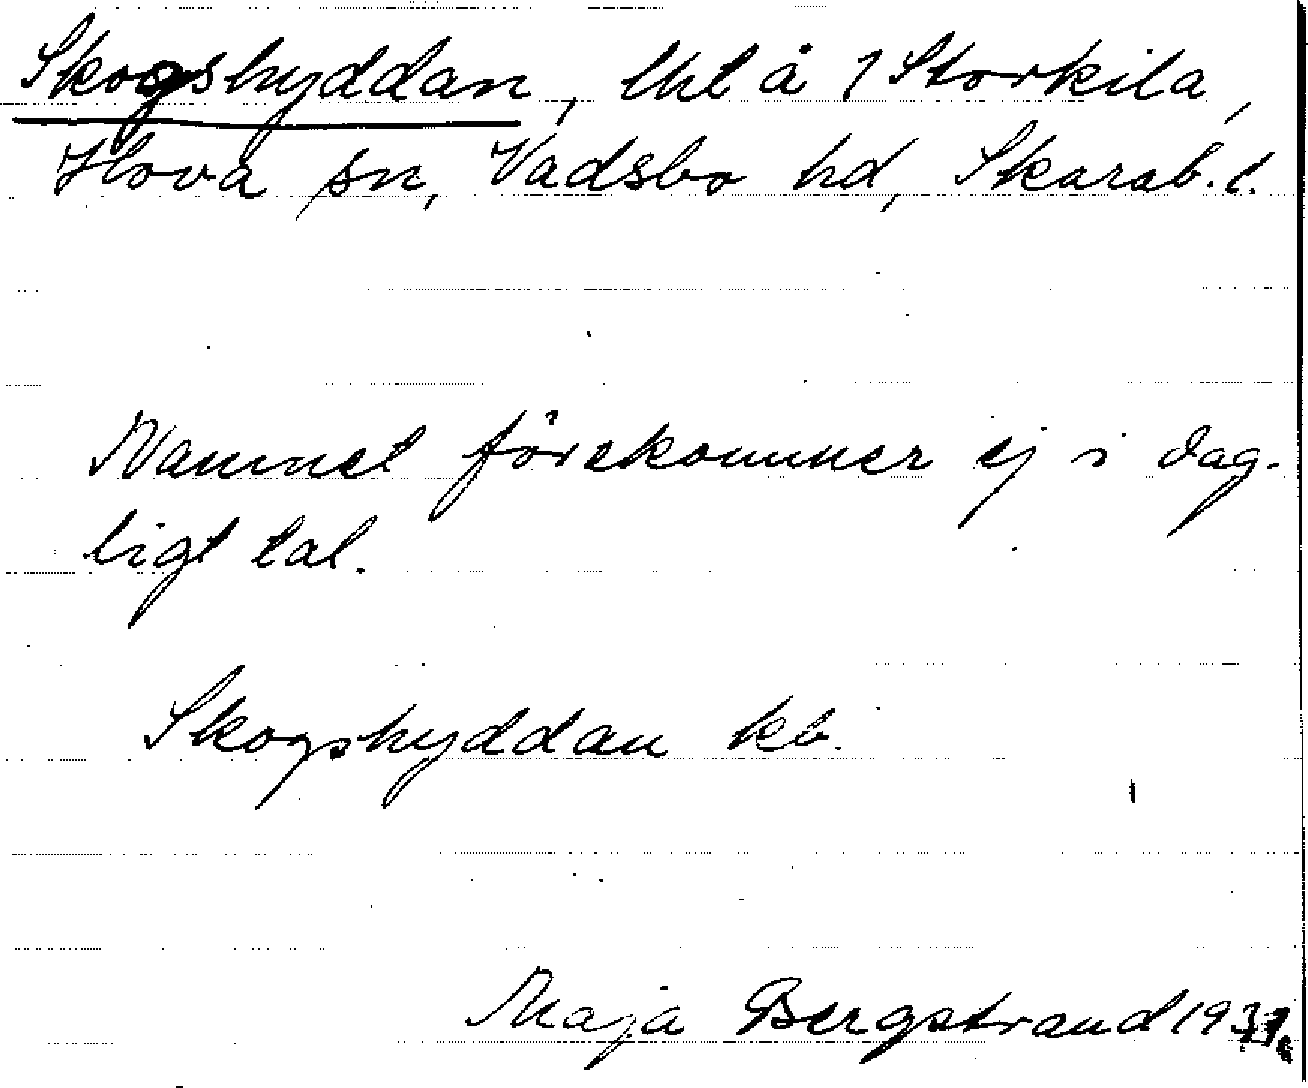 Skogshyddan, lht å 1 Storkila,
Hova sn, Vadsbo hd, Skarab. l.
Namnet förekommer ej i dag-
ligt tal.
Skogshyddan kb.
Maja Bergstrand 1931.